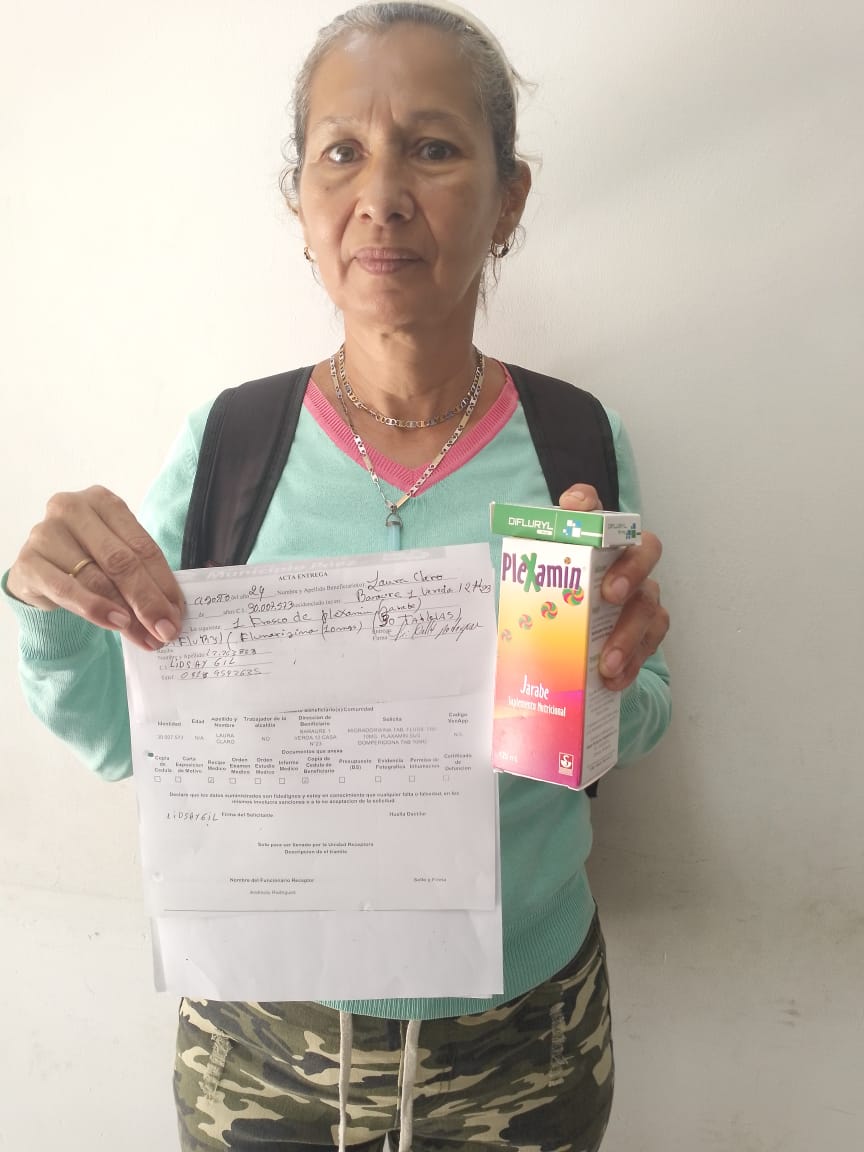 Municipio Páez
ACTA ENTREGA
Agosto del año 24 Nombre y Apellido Beneficiario(s) Laura Claro
de años C.I: 30.007.573 residenciado (a) en: Baraure 1 Vereda 12 #23
Lo siguiente 1 Frasco de Plexamin (Jarabe)
(Flunarizina 10mgs) (30 Tabletas)
Firma
Nombre y Apellido
C.I. LIDSAY GIL
Telef
Beneficiario(s)/Comunidad
Identidad Edad Apellido y Nombre Trabajador de la alcaldia Direccion de Beneficiario Solicita Codigo VenApp
30.007.573 N/A LAURA CLARO NO BARAURE 1 VERDA 12 CASA N°23 10MG PLAXAMIN SUS DOMPERIDONA TAB 10MG
Documentos que anexa
Copia de Cedula Carta Exposicion de Motivo Recipe Medico Orden Examen Medico Orden Estudio Medico Informe Medico Copia de Cedula de Beneficiario Presupuesto (BS) Evidencia Fotografica Permiso de Inhumacion Certificado de Defuncion
Declaro que los datos suministrados son fidedignos y estoy en conocimiento que cualquier falta o falsedad, en los
mismos involucra sanciones o a la no aceptacion de la solicitud
LIDSAY GIL Firma del Solicitante Huella Dactilar
Solo para ser llenado por la Unidad Receptora
Descripcion de el tramite
Nombre del Funcionario Receptor Sello y Firma
Andreula Rodriguez
DIFLURYL
PleXamin
Jarabe
Suplemento Nutricional
120 mL